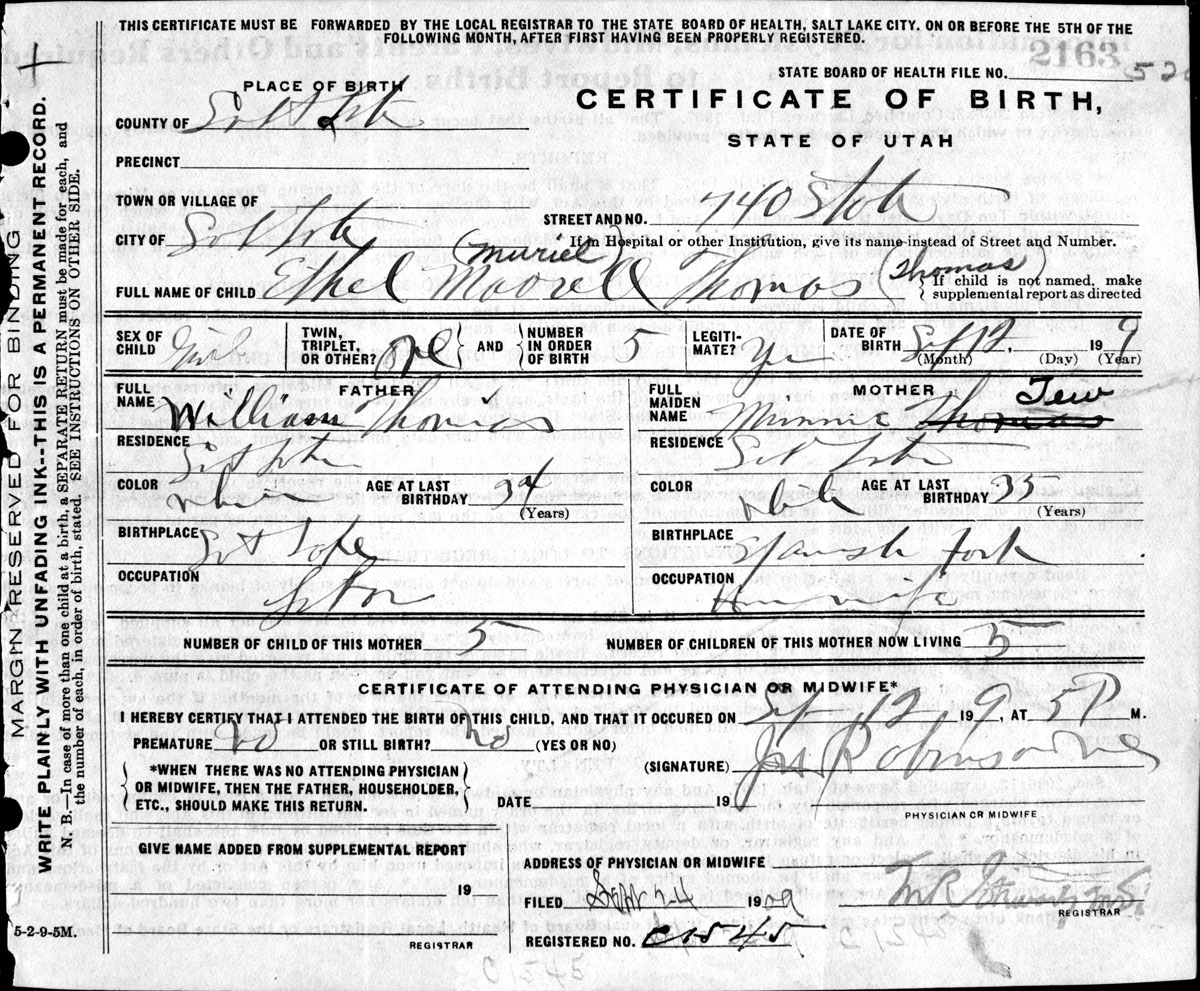 THIS CERTIFICATE MUST BE FORWARDED BY THE LOCAL REGISTRAR TO THE STATE BOARD OF HEALTH, SALT LAKE CITY. ON OR BEFORE THE 5TH OF THE
FOLLOWING MONTH, AFTER FIRST HAVING BEEN PROPERLY REGISTERED.
2163
STATE BOARD OF HEALTH FILE NO.
PLACE OF BIRTH
CERTIFICATE OF BIRTH,
COUNTY OF Salt Lake
STATE OF UTAH
PRECINCT
TOWN OR VILLAGE OF
STREET AND NO. 740 State
CITY OF Salt Lake
If in Hospital or other Institution, give its name instead of Street and Number.
(Muriel Thomas)
FULL NAME OF CHILD Ethel Thomas
If child is not named, make
supplemental report as directed
SEX OF CHILD Girl
TWIN, TRIPLET, OR OTHER? one AND NUMBER IN ORDER OF BIRTH 5
LEGITIMATE? Yes
DATE OF BIRTH Sept 12, 190 9
(Month) (Day) (Year)
FATHER
FULL NAME William Thomas
RESIDENCE Salt Lake
COLOR AGE AT LAST BIRTHDAY 34
(Years)
BIRTHPLACE Salt Lake
OCCUPATION
MOTHER
FULL MAIDEN NAME Minnie Thomas Tew
RESIDENCE Salt Lake
COLOR AGE AT LAST BIRTHDAY 35
(Years)
BIRTHPLACE Spanish Fork
OCCUPATION Housewife
NUMBER OF CHILD OF THIS MOTHER 5
NUMBER OF CHILDREN OF THIS MOTHER NOW LIVING 5
CERTIFICATE OF ATTENDING PHYSICIAN OR MIDWIFE*
I HEREBY CERTIFY THAT I ATTENDED THE BIRTH OF THIS CHILD, AND THAT IT OCCURED ON Sep 12 190 9, AT 5 P M.
PREMATURE No OR STILL BIRTH? no (YES OR NO)
(SIGNATURE) Robinson
*WHEN THERE WAS NO ATTENDING PHYSICIAN
OR MIDWIFE, THEN THE FATHER, HOUSEHOLDER,
ETC., SHOULD MAKE THIS RETURN.
DATE 190
PHYSICIAN OR MIDWIFE
GIVE NAME ADDED FROM SUPPLEMENTAL REPORT
19
REGISTRAR
ADDRESS OF PHYSICIAN OR MIDWIFE
FILED 24 1909
REGISTRAR
REGISTERED NO. C1545
5-2-9-5M.
MARGIN RESERVED FOR BINDING
WRITE PLAINLY WITH UNFADING INK--THIS IS A PERMANENT RECORD.
N. B.—In case of more than one child at a birth, a SEPARATE RETURN must be made for each, and
the number of each, in order of birth, stated. SEE INSTRUCTIONS ON OTHER SIDE.